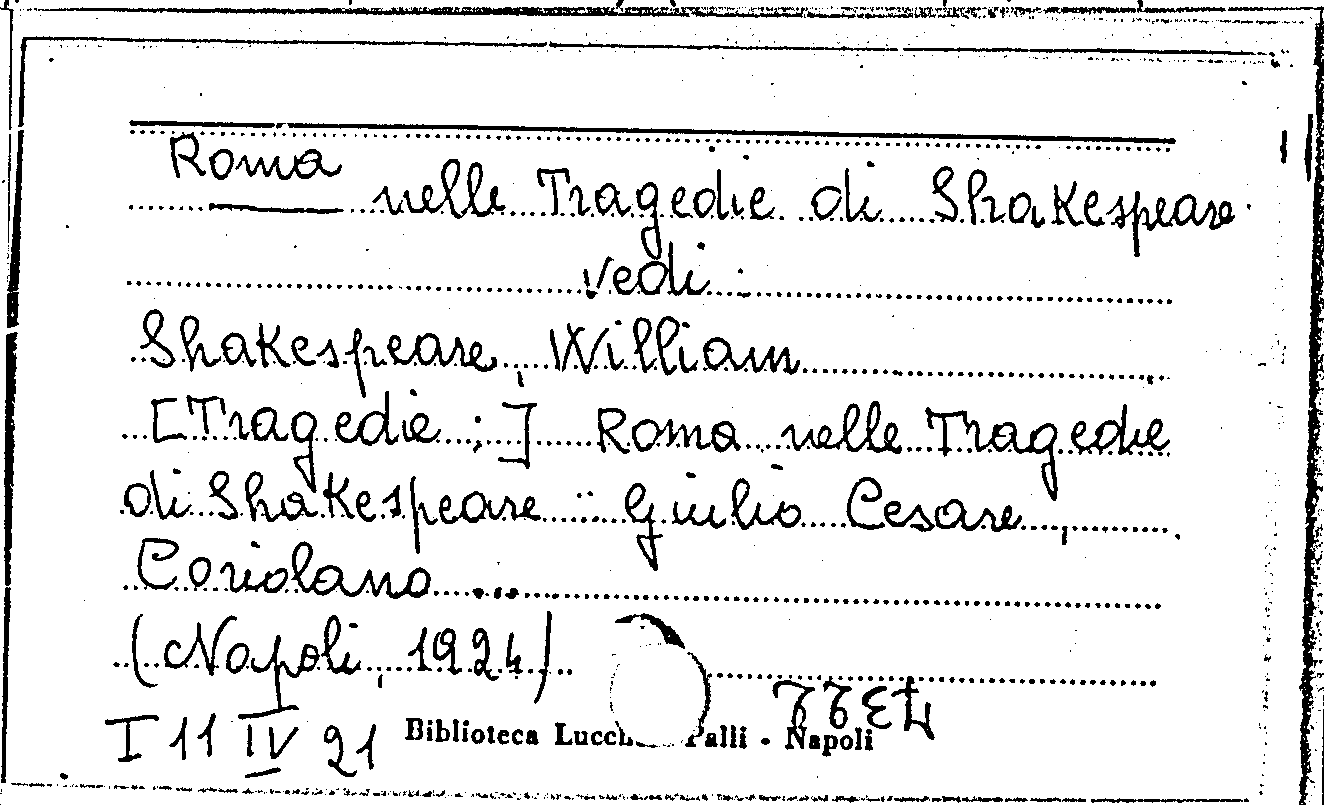 Roma nelle Tragedie di Shakespeare.
vedi :
Shakespeare, William
[Tragedie ; ] Roma nelle Tragedie
di Shakespeare : Giulio Cesare,
Coriolano ...
(Napoli, 1924)
I 11 IV 21
Biblioteca Palli - Napoli